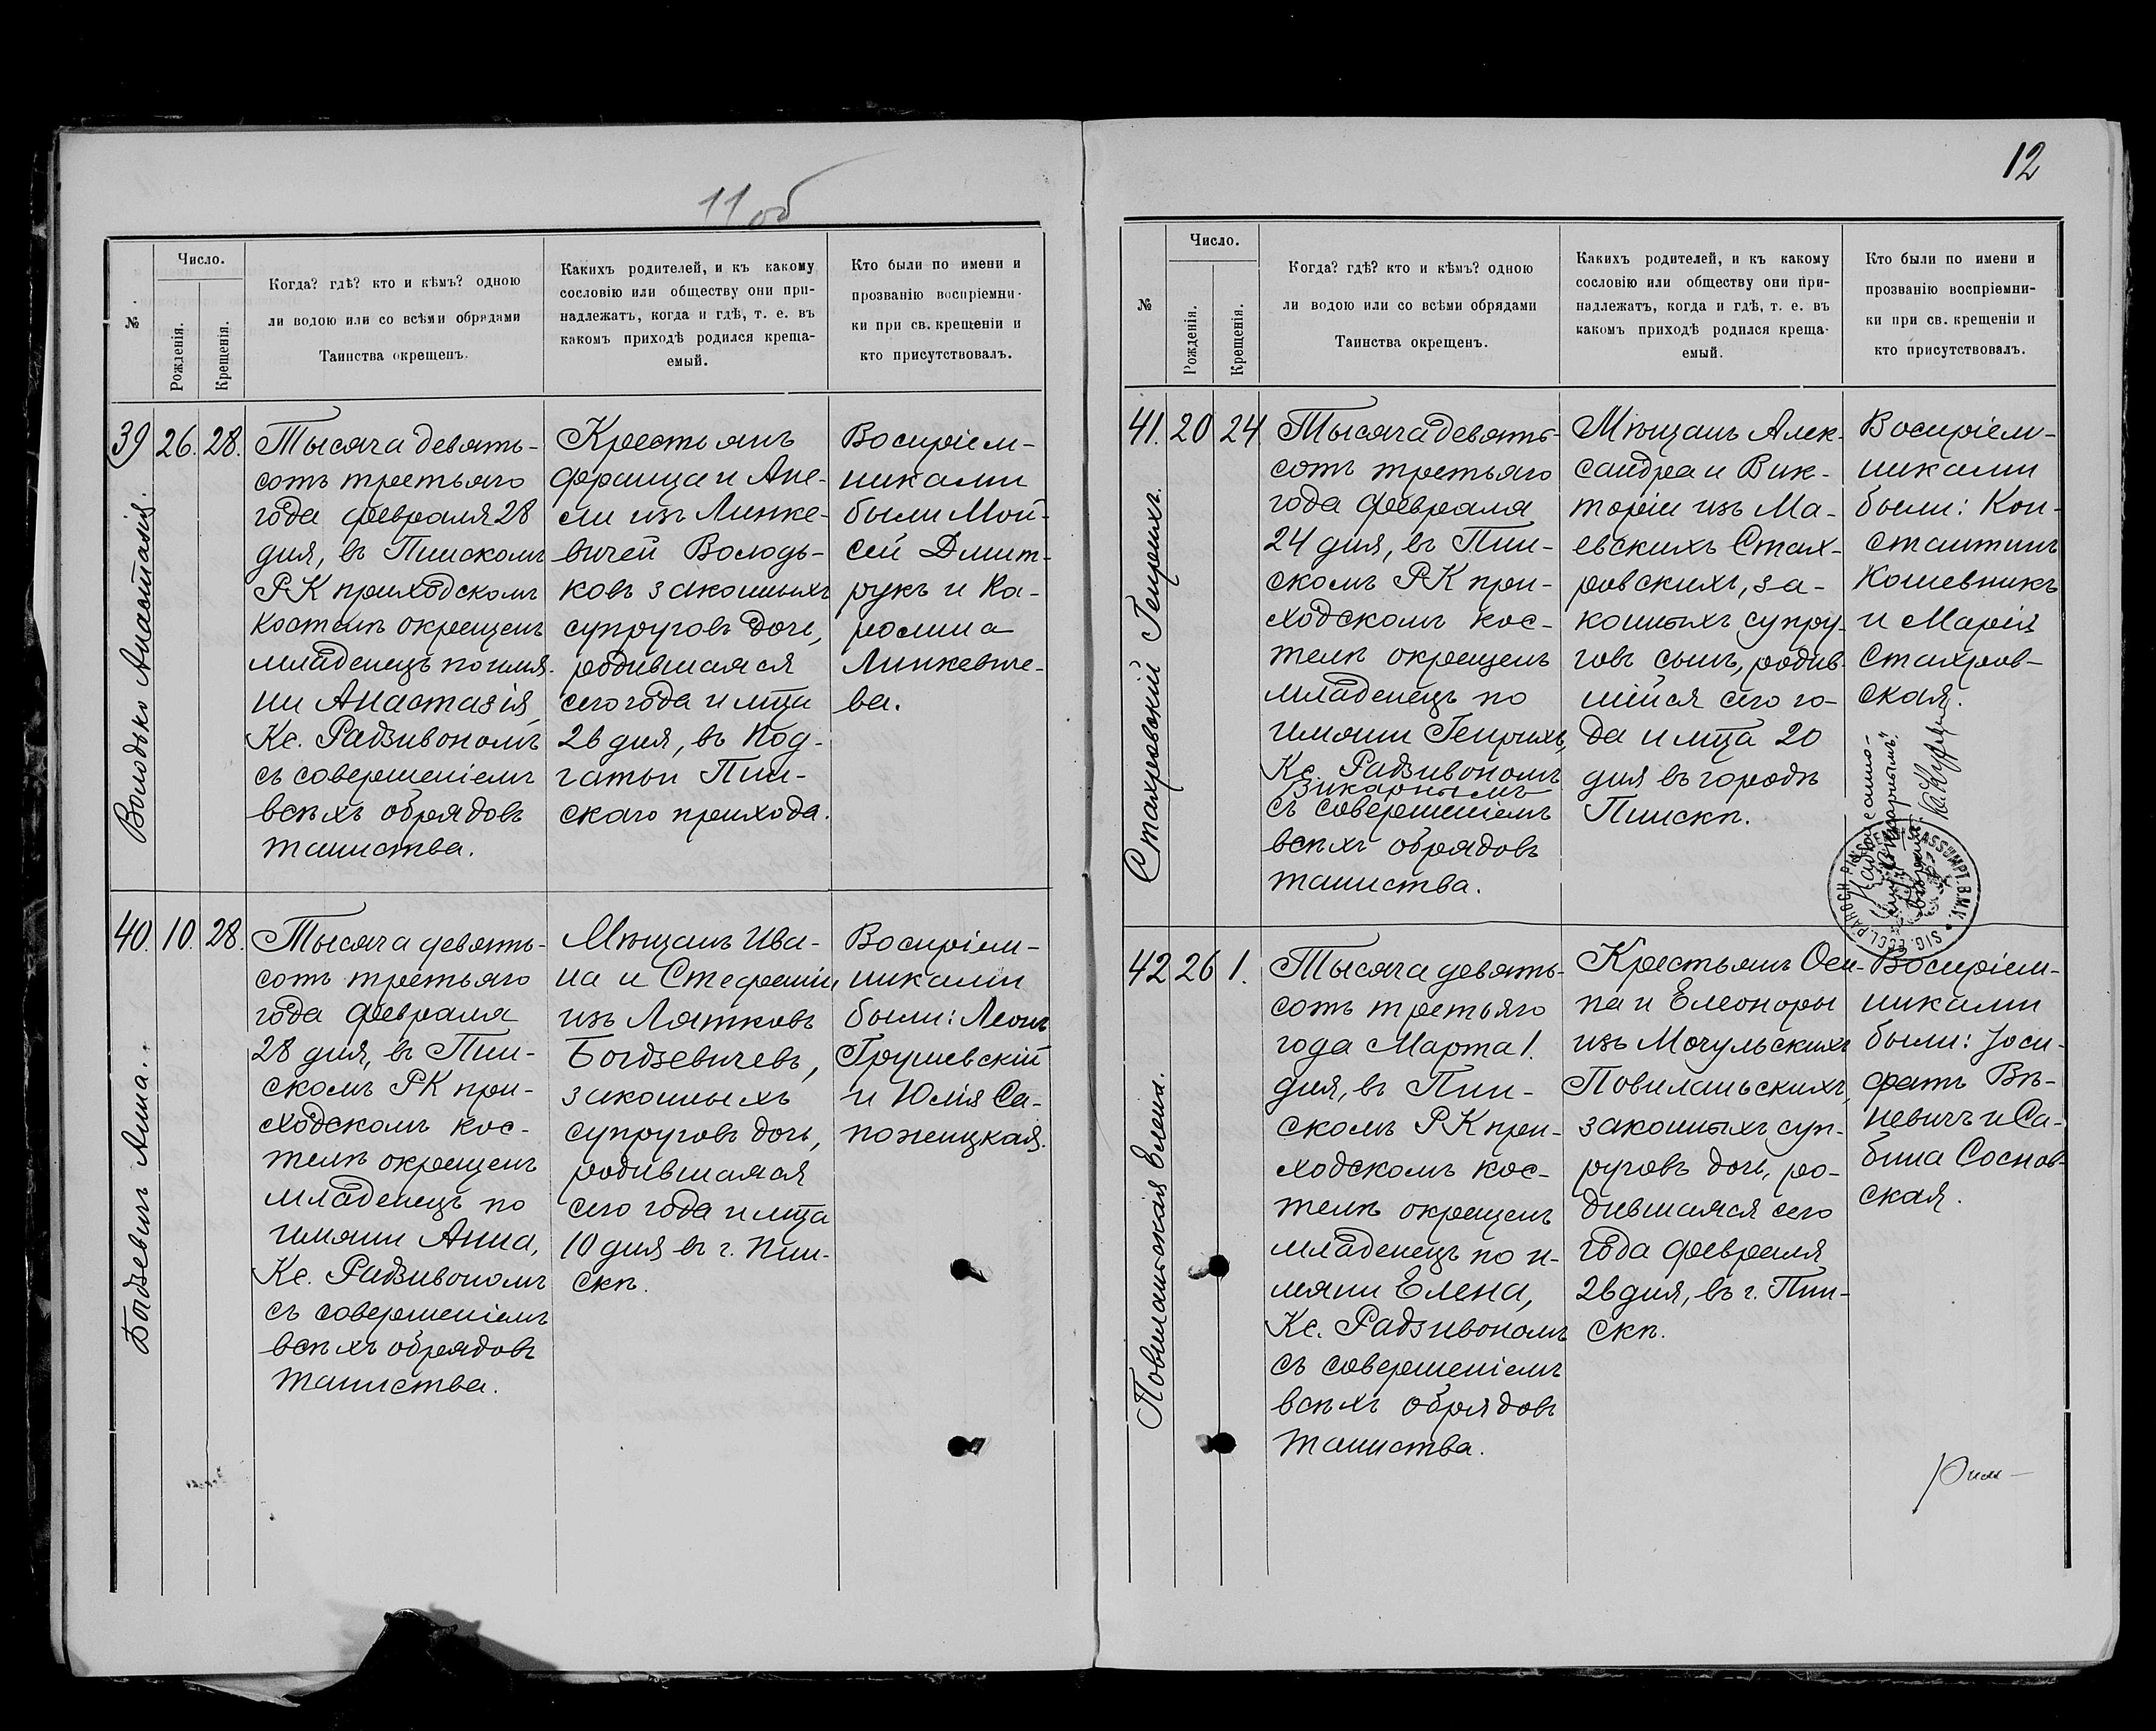 11 об
№
Число.
Рожденія.
Крещенія.
Когда? гдѣ? кто и кѣмъ? одною
ли водою или со всѣми обрядами
Таинства окрещенъ.
Какихъ родителей, и къ какому
сословію или обществу они при-
надлежатъ, когда и гдѣ, т. е. въ
какомъ приходѣ родился креща-
емый.
Кто были по имени и
прозванію воспріемни-
ки при св. крещеніи и
кто присутствовалъ.
39 26. 28.
Володько Анастазія.
Тысяча девять-
сотъ третьяго
года февраля 28
дня, въ Пинскомъ
РК приходскомъ
костелѣ окрещенъ
младенецъ по имя-
ни Анастазія,
Кс. Радзивономъ
съ совершеніемъ
всѣхъ обрядовъ
таинства.
Крестьянъ
Франца и Апе-
ли изъ Линке-
вичей Володь-
ковъ законныхъ
супруговъ дочь,
родившаяся
сего года и мца
26 дня, въ Под-
гатьи Пин-
скаго прихода.
Воспріем-
никами
были Мой-
сей Дмит-
рукъ и Ка-
ролина
Линкевиче-
ва.
40. 10. 28.
Богдзевичъ Анна.
Тысяча девять-
сотъ третьяго
года февраля
28 дня, въ Пин-
скомъ РК при-
ходскомъ кос-
телѣ окрещенъ
младенецъ по
имяни Анна,
Кс. Радзивономъ
съ совершеніемъ
всѣхъ обрядовъ
таинства.
Мѣщанъ Ива-
на и Стефаніи
изъ Лятковъ
Богдзевичевъ,
законныхъ
супруговъ дочь,
родившаяся
сего года и мца
10 дня въ г. Пин-
скѣ.
Воспріем-
никами
были: Леонъ
Грушевскій
и Юлія Са-
пожецкая.
12
№
Число.
Рожденія.
Крещенія.
Когда? гдѣ? кто и кѣмъ? одною
ли водою или со всѣми обрядами
Таинства окрещенъ.
Какихъ родителей, и къ какому
сословію или обществу они при-
надлежатъ, когда и гдѣ, т. е. въ
какомъ приходѣ родился креща-
емый.
Кто были по имени и
прозванію воспріемни-
ки при св. крещеніи и
кто присутствовалъ.
41. 20 24
Стахровскій Генрихъ.
Тысяча девять-
сотъ третьяго
года февраля
24 дня, въ Пин-
скомъ РК при-
ходскомъ кос-
телѣ окрещенъ
младенецъ по
имяни Генрихъ,
Кс. Радзивономъ
Викарнымъ
съ совершеніемъ
всѣхъ обрядовъ
таинства.
Мѣщанъ Алек-
сандра и Вик-
торіи изъ Ма-
евскихъ Стах-
ровскихъ, за-
конныхъ супру-
говъ сынъ, родив-
шійся сего го-
да и мца 20
дня въ городѣ
Пинскѣ.
Воспріем-
никами
были: Кон-
стантинъ
Кошевникъ
и Марія
Стахров-
ская.
SIG. ECCL. PAROCH. PINSCEN. ASSUMPT. B.M.V.
42 26 1.
Повиланьская Елена.
Тысяча девять-
сотъ третьяго
года Марта 1.
дня, въ Пин-
скомъ РК при-
ходскомъ кос-
телѣ окрещенъ
младенецъ по и-
мяни Елена,
Кс. Радзивономъ
съ совершеніемъ
всѣхъ обрядовъ
таинства.
Крестьянъ Оси-
па и Елеоноры
изъ Мочульскихъ
Повиланьскихъ,
законныхъ суп-
руговъ дочь, ро-
дившаяся сего
года февраля
26 дня, въ г. Пин-
скѣ.
Воспріем-
никами
были: Іоси-
фатъ Вѣ-
невичъ и Са-
бина Соснов-
ская.